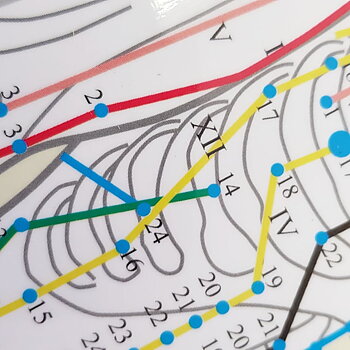 V
I
3
2
3
XII
17
1
14
18
IV
24
16
22
15
19
20
21
22
23
24
20
21